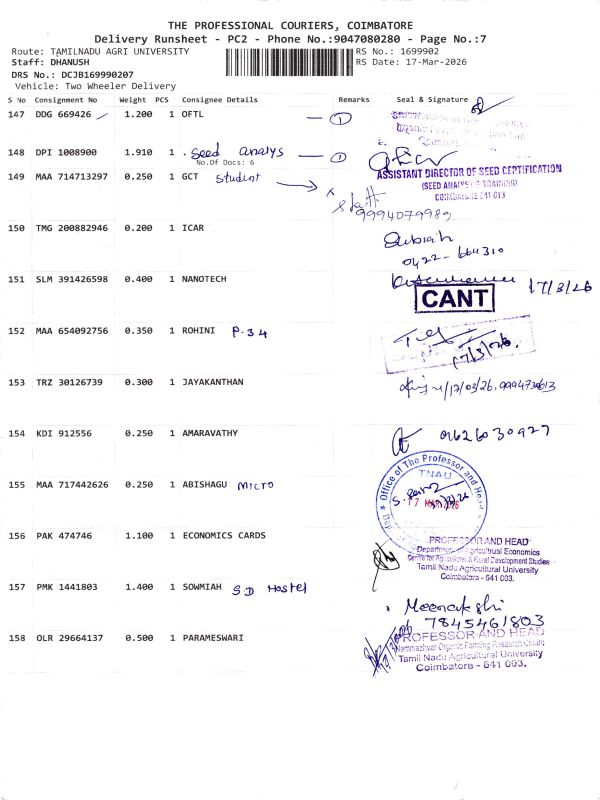 THE PROFESSIONAL COURIERS, COIMBATORE
Delivery Runsheet - PC2 - Phone No.:9047080280 - Page No.:7
Route: TAMILNADU AGRI UNIVERSITY
RS No.: 1699902
Staff: DHANUSH
RS Date: 17-Mar-2026
DRS No.: DCJB169990207
Vehicle: Two Wheeler Delivery
S No Consignment No Weight PCS Consignee Details Remarks Seal & Signature
147 DDG 669426 1.200 1 OFTL 1
148 DPI 1008900 1.910 1 Seed analys 1
No.Of Docs: 6
149 MAA 714713297 0.250 1 GCT Student
ASSISTANT DIRECTOR OF SEED CERTIFICATION
(SEED ANALYSIS & TRAINING)
COIMBATORE 641 013
9994079989
150 TMG 200882946 0.200 1 ICAR
0422-664310
151 SLM 391426598 0.400 1 NANOTECH
17/3/26
CANT
152 MAA 654092756 0.350 1 ROHINI P-34
17/3/26.
153 TRZ 30126739 0.300 1 JAYAKANTHAN
17/03/26,
154 KDI 912556 0.250 1 AMARAVATHY
155 MAA 717442626 0.250 1 ABISHAGU MICRO
Office of The Professor and Head
TNAU
156 PAK 474746 1.100 1 ECONOMICS CARDS
PROFESSOR AND HEAD
Department of Agricultural Economics
Centre for Agricultural & Rural Development Studies
Tamil Nadu Agricultural University
Coimbatore - 641 003.
157 PMK 1441803 1.400 1 SOWMIAH SD Hostel
Meenakshi
7845461803
158 OLR 29664137 0.500 1 PARAMESWARI
PROFESSOR AND HEAD
Nammazhvar Organic Farming Research Centre
Tamil Nadu Agricultural University
Coimbatore - 641 003.